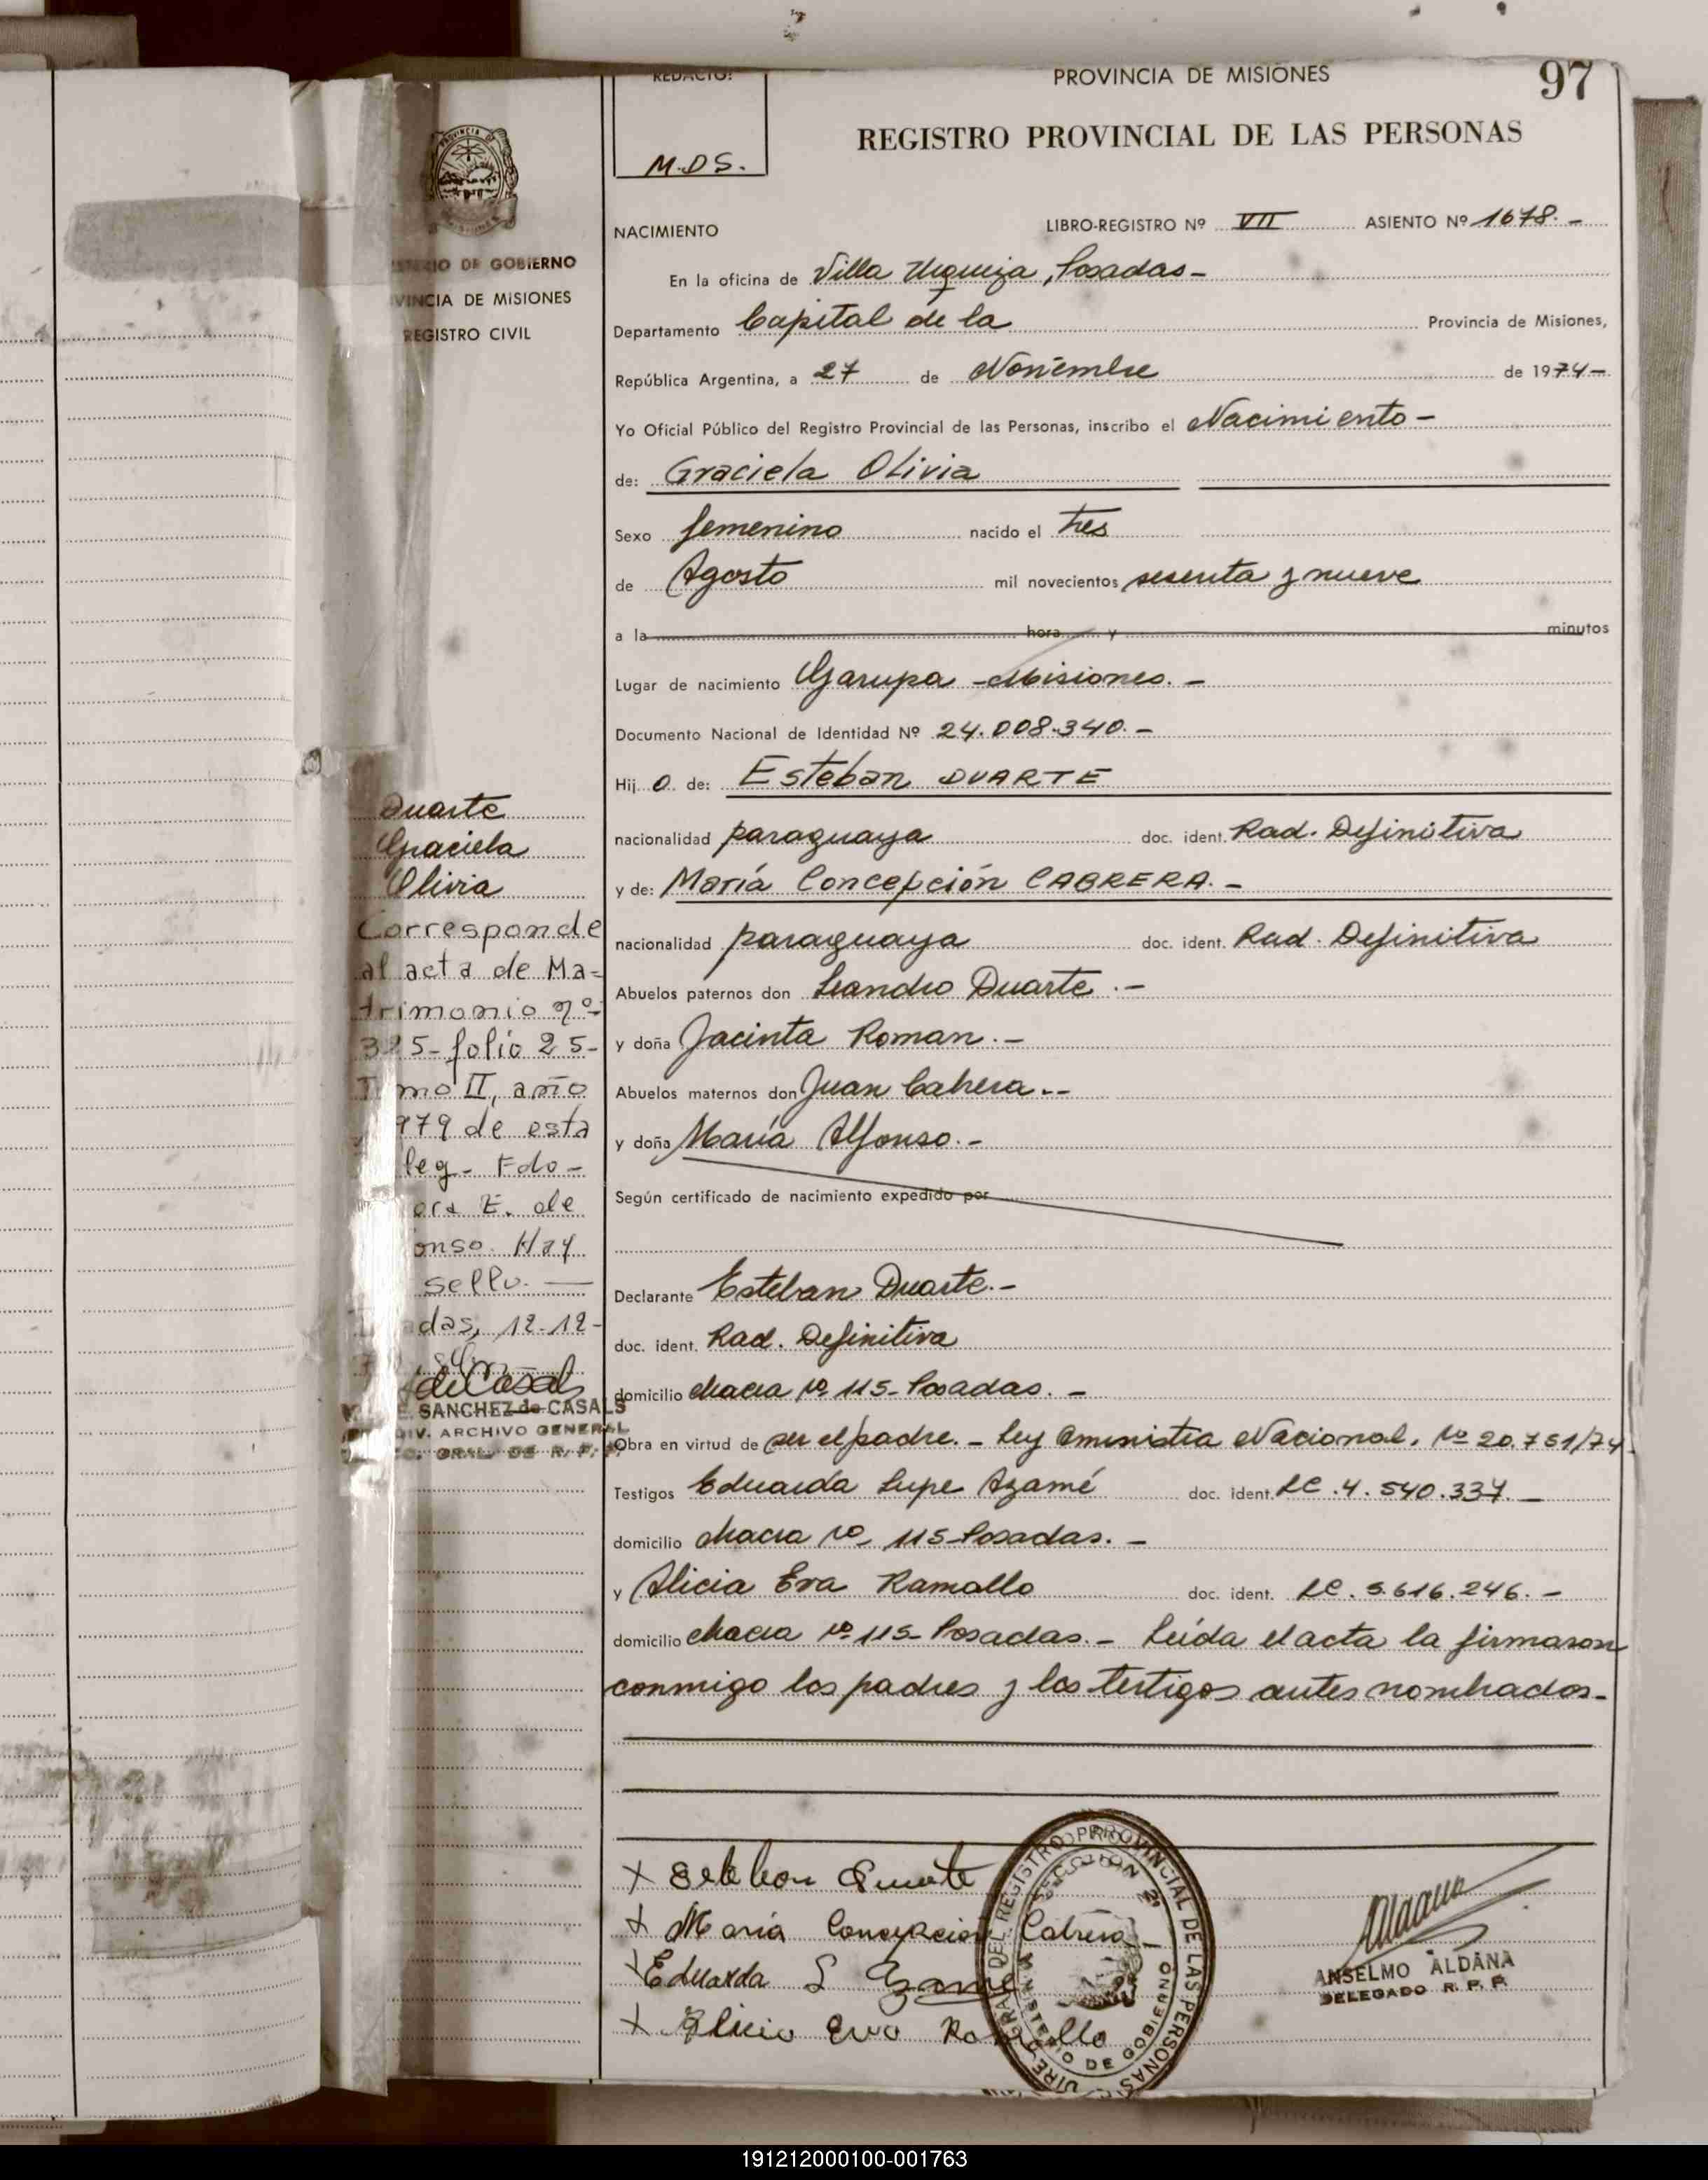 97
REDACTO:
M.D.S.
PROVINCIA DE MISIONES
REGISTRO PROVINCIAL DE LAS PERSONAS
NACIMIENTO
LIBRO-REGISTRO Nº VII ASIENTO Nº 1678.-
En la oficina de Villa Urquiza, Posadas-
Departamento Capital de la Provincia de Misiones,
República Argentina, a 27 de Noviembre de 1974-
Yo Oficial Público del Registro Provincial de las Personas, inscribo el Nacimiento-
de: Graciela Olivia
Sexo femenino nacido el tres
de Agosto mil novecientos sesenta y nueve
a la hora y minutos
Lugar de nacimiento Garupa - Misiones.-
Documento Nacional de Identidad Nº 24.008.340.-
Hij o de: Esteban DUARTE
nacionalidad paraguaya doc. ident. Rad. Definitiva
y de: María Concepción CABRERA.-
nacionalidad paraguaya doc. ident. Rad. Definitiva
Abuelos paternos don Leandro Duarte.-
y doña Jacinta Roman.-
Abuelos maternos don Juan Cabrera.-
y doña María Alfonso.-
Según certificado de nacimiento expedido por
Declarante Esteban Duarte.-
doc. ident. Rad. Definitiva
domicilio chacra Nº 115- Posadas.-
Obra en virtud de ser el padre.- Ley Aministia Nacional. Nº 20.751/74.
Testigos Eduarda Lupe Azamé doc. ident. LC. 4.540.337.-
domicilio chacra Nº 115 Posadas.-
y Alicia Eva Ramallo doc. ident. LC. 5.616.246.-
domicilio chacra Nº 115- Posadas.- Leída el acta la firmaron
conmigo los padres y los testigos antes nombrados.-
X Esteban Duarte
X María Concepcion Cabrera
X Eduarda L Azamé
X Alicia Eva Ramallo
DEL REGISTRO PROVINCIAL DE LAS PERSONAS
SECCION 2ª
MINISTERIO DE GOBIERNO
ANSELMO ALDANA
DELEGADO R. P. P.
DE GOBIERNO
VINCIA DE MISIONES
REGISTRO CIVIL
Duarte
Graciela
Olivia
Corresponde
al acta de Ma-
trimonio nº
folio 25-
Tomo II, año
1979 de esta
Fdo-
E. de
Hay
sello.
adas, 12-12-
de Casals
E. SANCHEZ de CASALS
DIV. ARCHIVO GENERAL
GRAL. DE R. P. P.
191212000100-001763